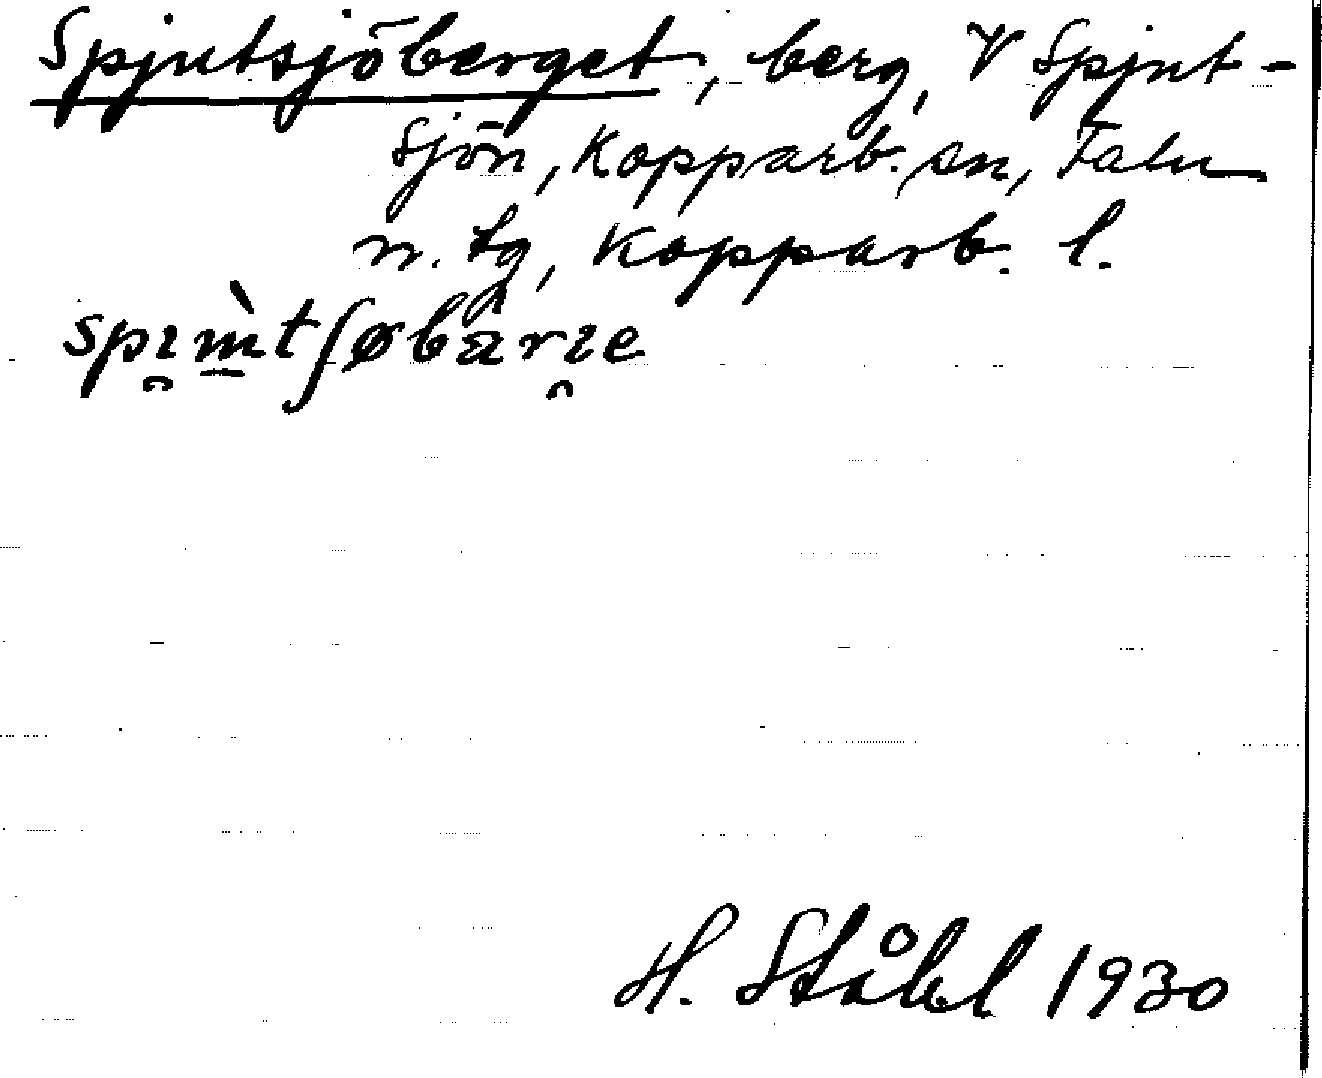 Spjutsjöberget, berg, V Spjut-
sjön, Kopparb. sn, Falu
n. tg, Kopparb. l.
H. Ståhl 1930